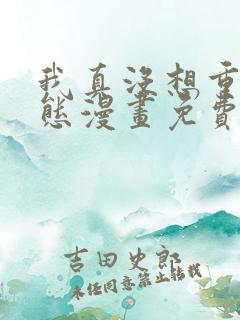 我真没想重
态漫畫免費
吉田史郎
未经同意禁止转载